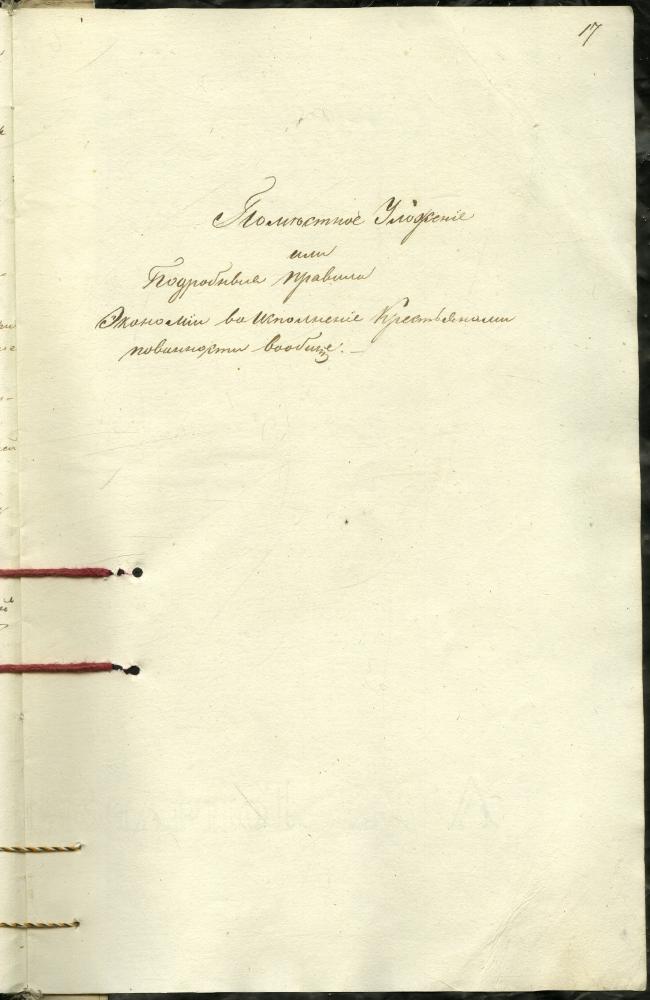 17
Помѣстное Уложеніе
или
Подробныя правила
Экономіи во исполненіе Крестьянами
повинности вообще. —